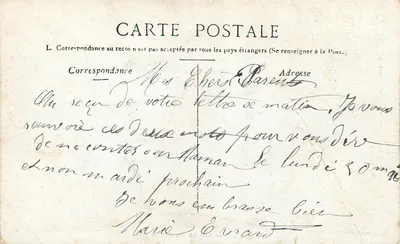 CARTE POSTALE
L. Correspondance au recto n'est pas acceptée par tous les pays étrangers (Se renseigner à la Poste)
Correspondance Adresse
Mes Chers Parents
reçu de votre lettre ce matin. Je vous
renvoie ces deux mots pour vous dire
de Maman le lundi
et non mardi prochain
Je vous embrasse bien
Marie Evrard